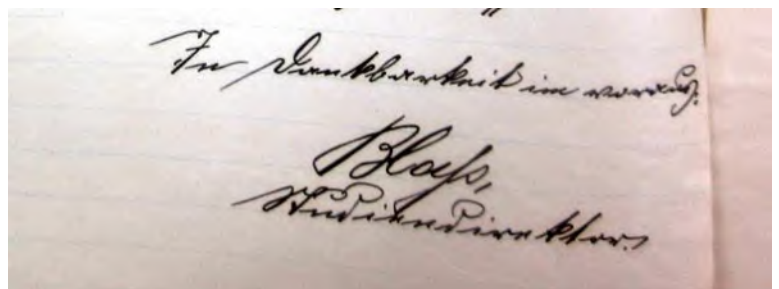 In Dankbarkeit im voraus:
Blass,
Studiendirektor.